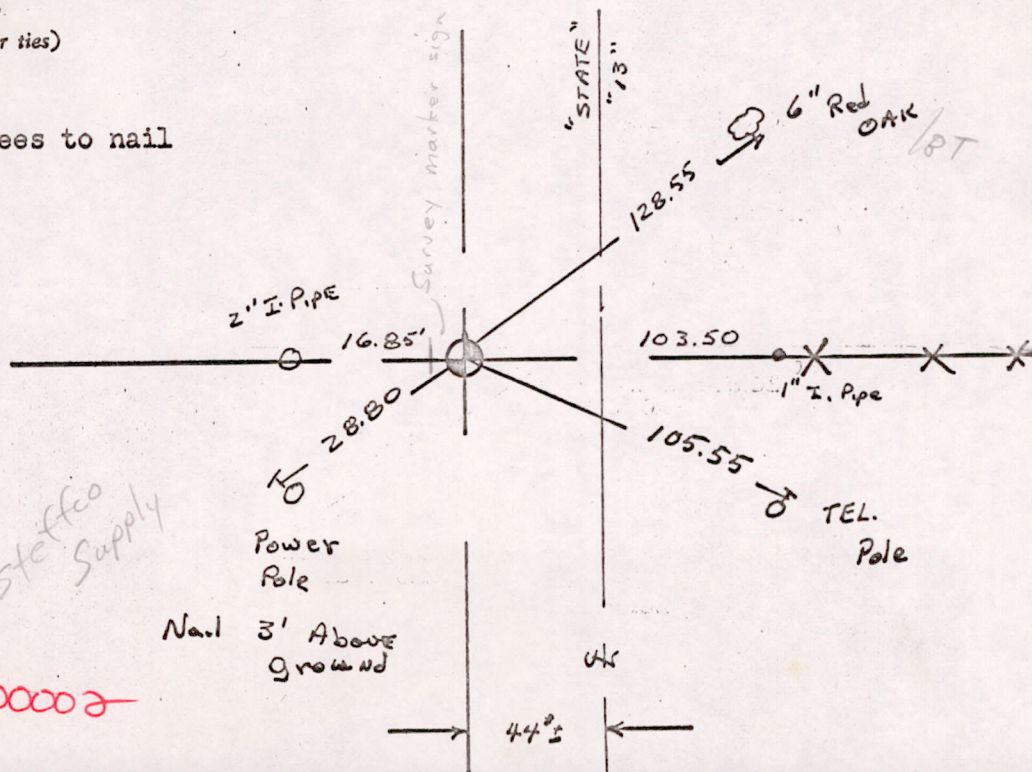 r ties)
ees to nail
Survey marker sign
"STATE"
"13"
6" Red
OAK
/BT
128.55
2" I. PIPE
16.85'
103.50
1" I. Pipe
28.80
105.55
TEL.
Pole
Steffco
Supply
Power
Pole
Nail 3' Above
Ground
00002
44°±